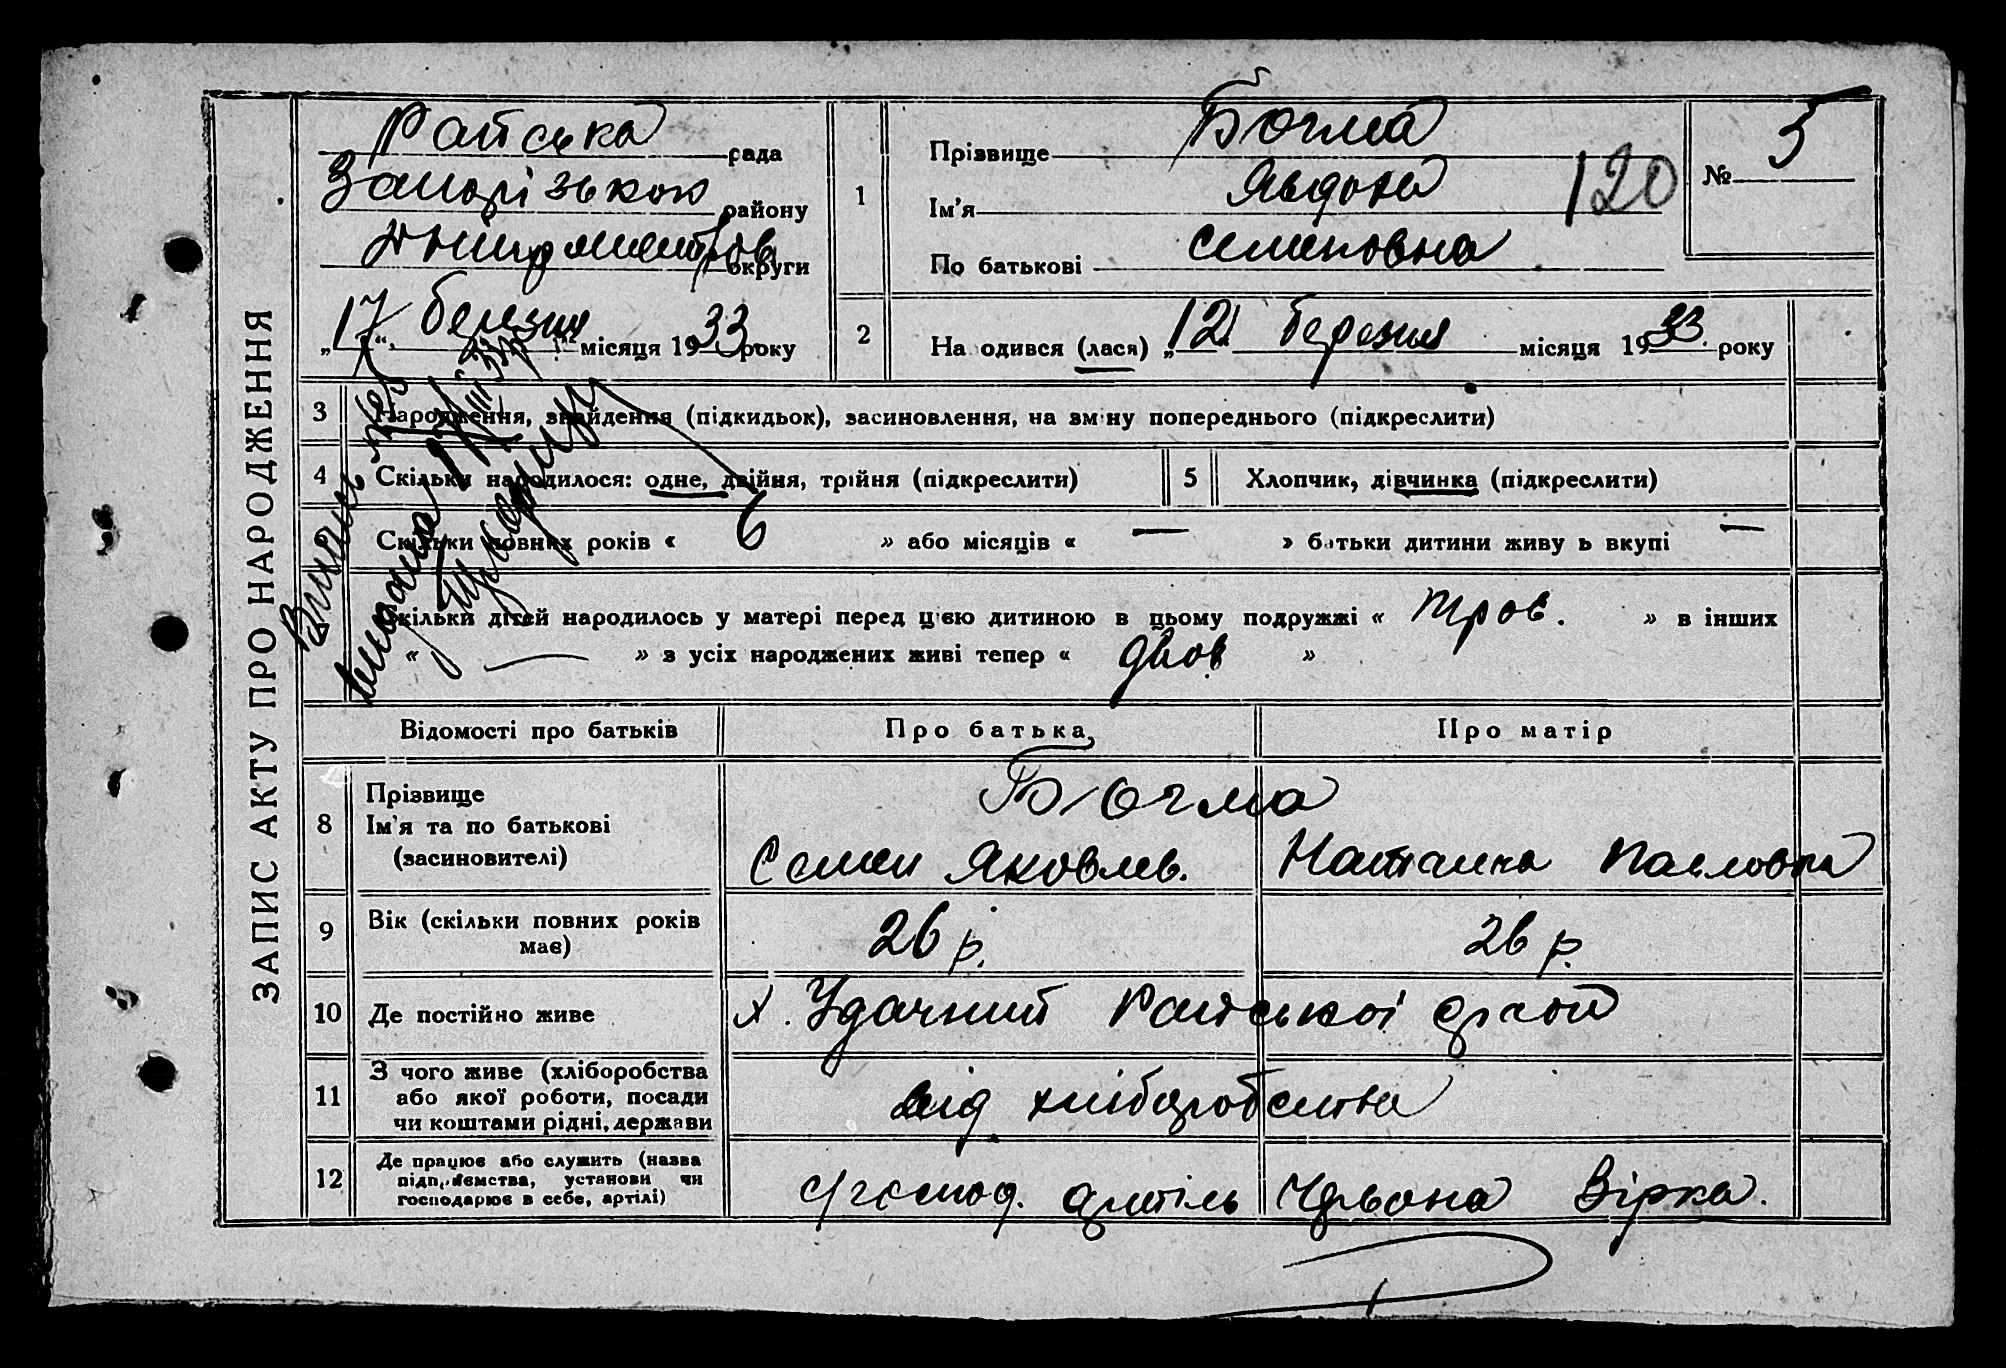 ЗАПИС АКТУ ПРО НАРОДЖЕННЯ
Райська рада
Запорізького району
Дніпропетров округи
„17“ березня місяця 1933 року
1
Прізвище Бочма
Ім'я Явдоха
По батькові Семеновна
120
№ 5
2
На одився (лася) „12 березня місяця 1933. року
3 Народження, знайдення (підкидьок), засиновлення, на зміну попереднього (підкреслити)
4 Скільки народилося: одне, двійня, трійня (підкреслити)
5 Хлопчик, дівчинка (підкреслити)
Скільки повних років « 6 » або місяців « — » батьки дитини живу ь вкупі —
Скільки дітей народилось у матері перед цією дитиною в цьому подружжі « троє. » в інших
« — » з усіх народжених живі тепер « двоє »
Відомості про батьків Про батька Про матір
8 Прізвище
Ім'я та по батькові
(засиновителі)
Бочма
Семен Яковлев. Наталка Павловна
9 Вік (скільки повних років має)
26 р. 26 р.
10 Де постійно живе х. Удачний Райської
11 З чого живе (хліборобства
або якої роботи, посади
чи коштами рідні, держави
від хліборобства
12 Де працює або служить (назва
підприємства, установи чи
господарює в себе, артілі)
с/господ. артіль Червона Зірка.